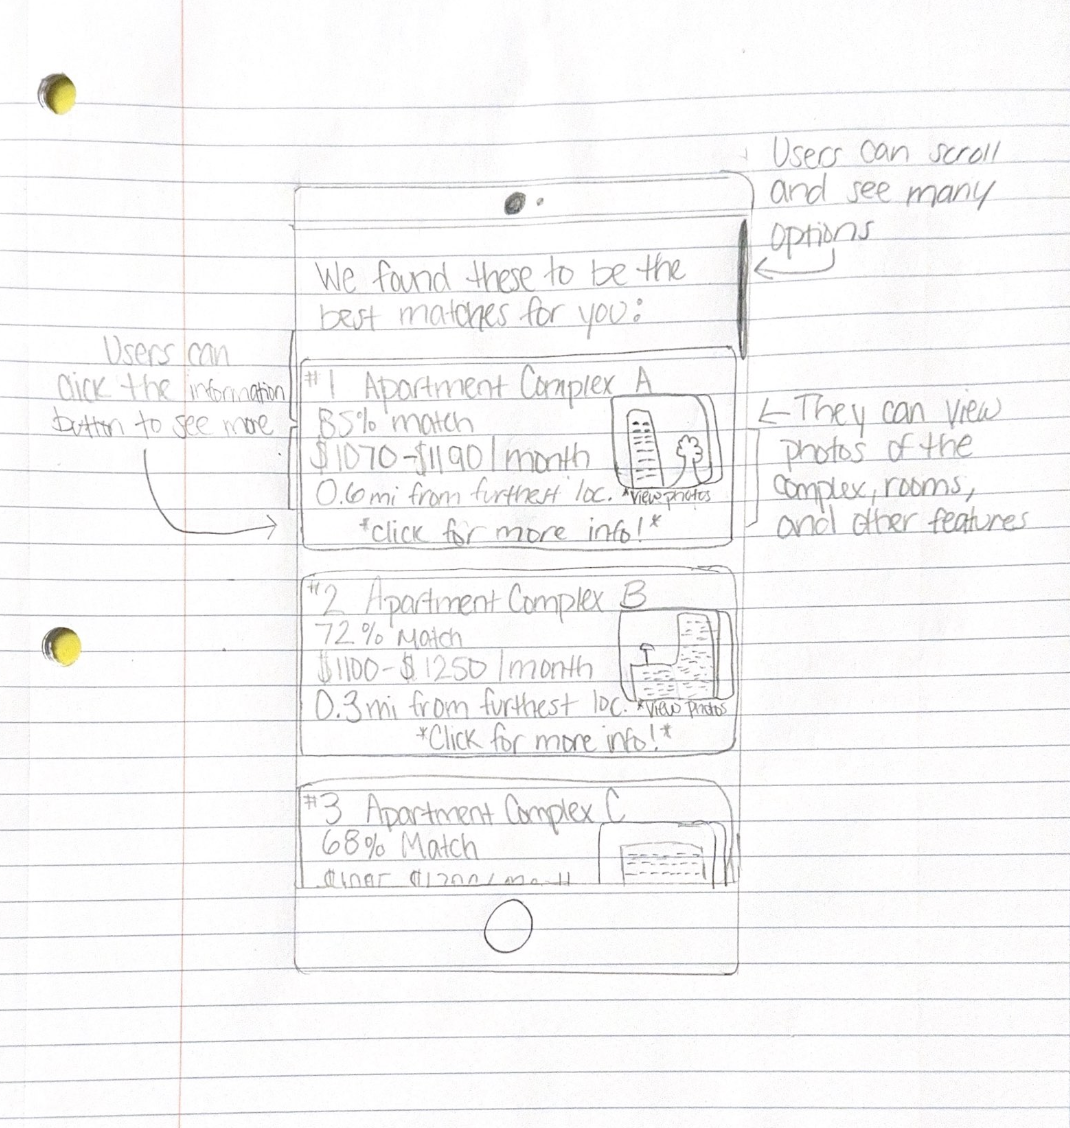 Users can scroll
and see many
options
We found these to be the
best matches for you:
Users can
click the information
button to see more
#1 Apartment Complex A
85% match
$1070-$1190/month
0.6mi from furthest loc. *View photos
*click for more info!*
← They can view
photos of the
complex, rooms,
and other features
#2 Apartment Complex B
72% Match
$1100-$1250/month
0.3mi from furthest loc. *View photos
*Click for more info!*
#3 Apartment Complex C
68% Match